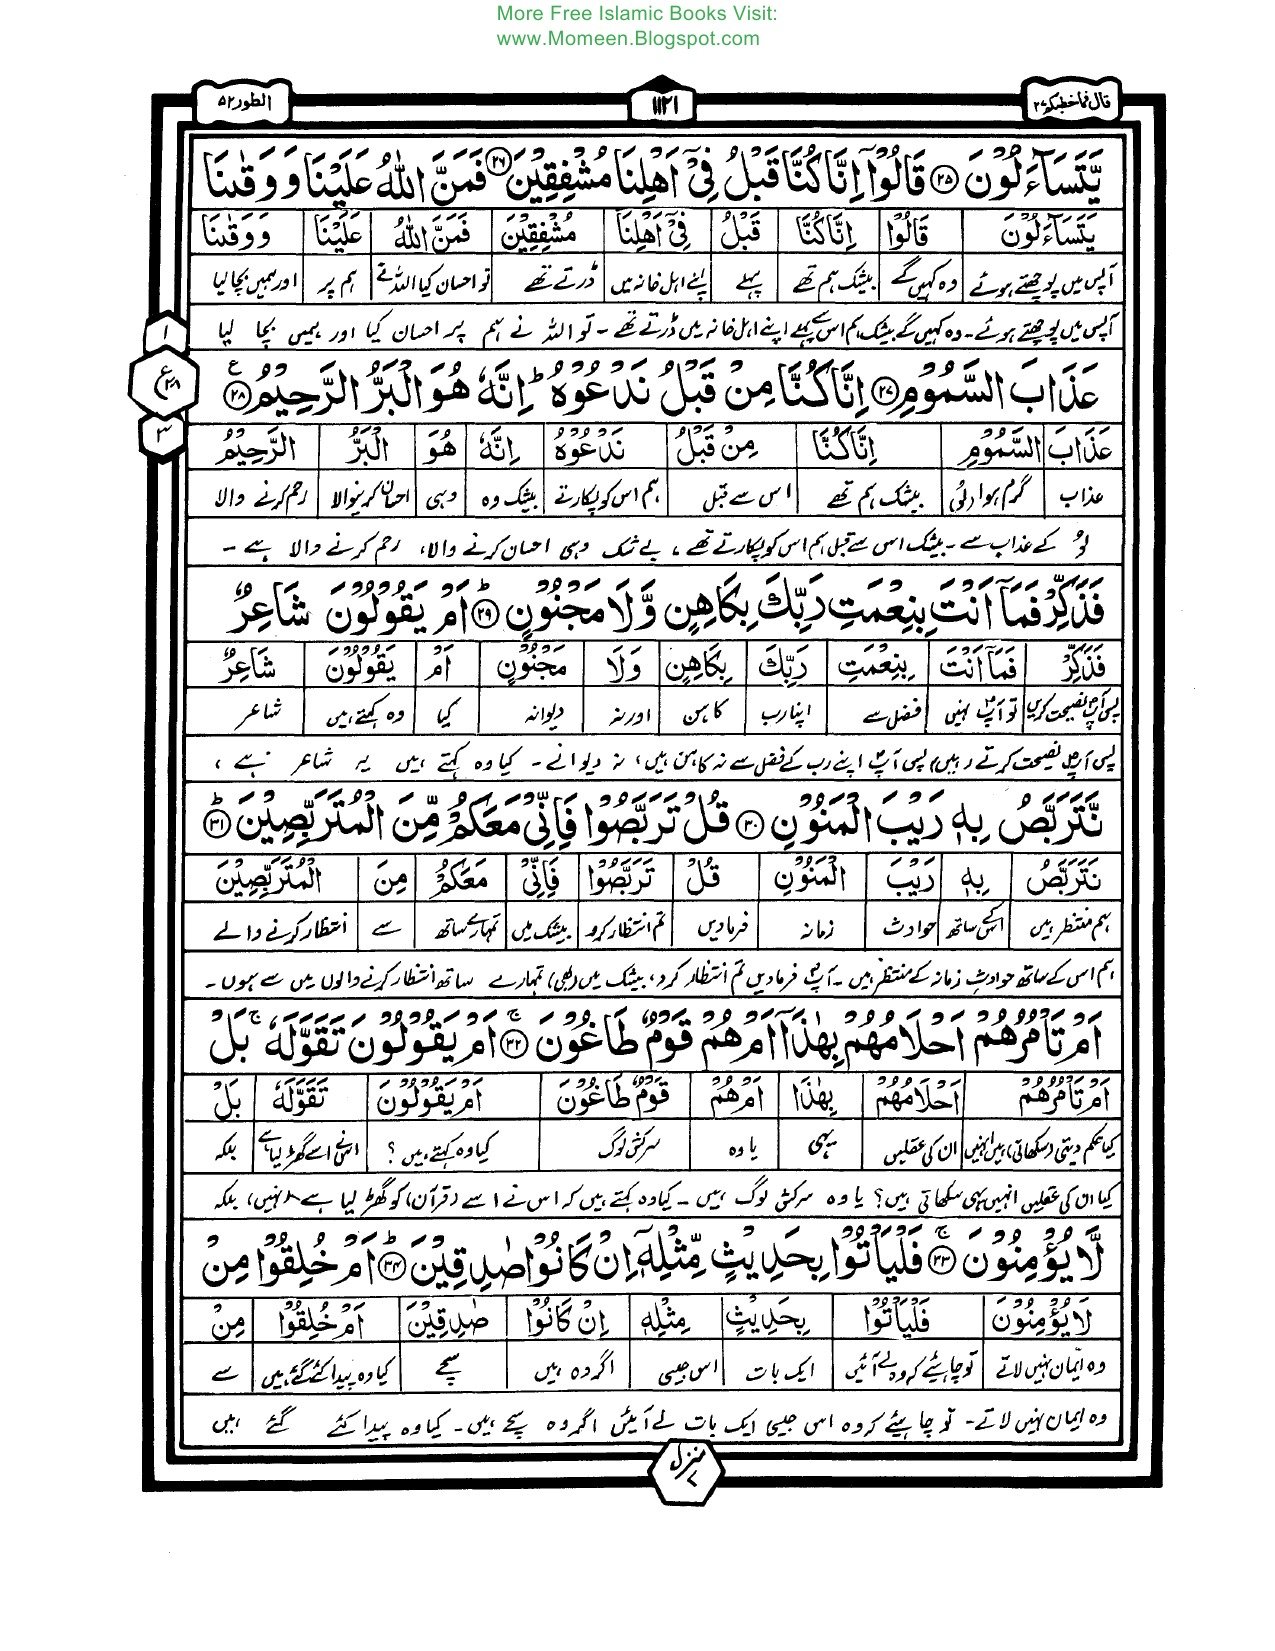 More Free Islamic Books Visit:
www.Momeen.Blogspot.com
قال فما خطبکم ۲۷
۱۱۲۱
الطور ۵۲
يَّتَسَآءَلُوْنَ ۝۲۵ قَالُوْٓا اِنَّا كُنَّا قَبْلُ فِيْٓ اَهْلِنَا مُشْفِقِيْنَ ۝۲۶ فَمَنَّ اللّٰهُ عَلَيْنَا وَوَقٰىنَا
يَتَسَآءَلُوْنَ قَالُوْا اِنَّا كُنَّا قَبْلُ فِيْٓ اَهْلِنَا مُشْفِقِيْنَ فَمَنَّ اللّٰهُ عَلَيْنَا وَوَقٰىنَا
آپس میں پوچھتے ہوئے وہ کہیں گے بیشک ہم تھے پہلے اپنے اہل خانہ میں ڈرتے تھے تو احسان کیا اللہ نے ہم پر اور ہمیں بچا لیا
آپس میں پوچھتے ہوئے۔ وہ کہیں گے بیشک ہم اس سے پہلے اپنے اہل خانہ میں ڈرتے تھے۔ تو اللہ نے ہم پر احسان کیا اور ہمیں بچا لیا
۱
ع ۲۸
۳
عَذَابَ السَّمُوْمِ ۝۲۷ اِنَّا كُنَّا مِنْ قَبْلُ نَدْعُوْهُ ؕ اِنَّهٗ هُوَ الْبَرُّ الرَّحِيْمُ ۝۲۸ ع
عَذَابَ السَّمُوْمِ اِنَّا كُنَّا مِنْ قَبْلُ نَدْعُوْهُ اِنَّهٗ هُوَ الْبَرُّ الرَّحِيْمُ
عذاب گرم ہوا (لو) بیشک ہم تھے اس سے قبل ہم اس کو پکارتے بیشک وہ وہی احسان کرنیوالا رحم کرنے والا
لو کے عذاب سے۔ بیشک اس سے قبل ہم اس کو پکارتے تھے، بے شک وہی احسان کرنے والا، رحم کرنے والا ہے۔
فَذَكِّرْ فَمَآ اَنْتَ بِنِعْمَتِ رَبِّكَ بِكَاهِنٍ وَّلَا مَجْنُوْنٍ ؕ۝۲۹ اَمْ يَقُوْلُوْنَ شَاعِرٌ
فَذَكِّرْ فَمَآ اَنْتَ بِنِعْمَتِ رَبِّكَ بِكَاهِنٍ وَلَا مَجْنُوْنٍ اَمْ يَقُوْلُوْنَ شَاعِرٌ
پس آپؐ نصیحت کریں تو آپؐ نہیں فضل سے اپنا رب کاہن اور نہ دیوانہ کیا وہ کہتے ہیں شاعر
پس آپؐ نصیحت کرتے (رہیں) پس آپؐ اپنے رب کے فضل سے نہ کاہن ہیں، نہ دیوانے۔ کیا وہ کہتے ہیں یہ شاعر ہے،
نَّتَرَبَّصُ بِهٖ رَيْبَ الْمَنُوْنِ ۝۳۰ قُلْ تَرَبَّصُوْا فَاِنِّيْ مَعَكُمْ مِّنَ الْمُتَرَبِّصِيْنَ ؕ۝۳۱
نَتَرَبَّصُ بِهٖ رَيْبَ الْمَنُوْنِ قُلْ تَرَبَّصُوْا فَاِنِّيْ مَعَكُمْ مِنَ الْمُتَرَبِّصِيْنَ
ہم منتظر ہیں اسکے ساتھ حوادث زمانہ فرمادیں تم انتظار کرو بیشک میں تمہارے ساتھ سے انتظار کرنے والے
ہم اس کے ساتھ حوادثِ زمانہ کے منتظر ہیں۔ آپؐ فرمادیں تم انتظار کرو، بیشک میں (بھی) تمہارے ساتھ انتظار کرنے والوں میں سے ہوں۔
اَمْ تَاْمُرُهُمْ اَحْلَامُهُمْ بِهٰذَآ اَمْ هُمْ قَوْمٌ طَاغُوْنَ ۚ۝۳۲ اَمْ يَقُوْلُوْنَ تَقَوَّلَهٗ ۚ بَلْ
اَمْ تَاْمُرُهُمْ اَحْلَامُهُمْ بِهٰذَا اَمْ هُمْ قَوْمٌ طَاغُوْنَ اَمْ يَقُوْلُوْنَ تَقَوَّلَهٗ بَلْ
کیا حکم دیتی (سکھاتی) ہیں انہیں ان کی عقلیں یہی یا وہ سرکش لوگ کیا وہ کہتے ہیں؟ اسنے اسے گھڑ لیا ہے بلکہ
کیا ان کی عقلیں انہیں یہی سکھاتی ہیں؟ یا وہ سرکش لوگ ہیں۔ کیا وہ کہتے ہیں کہ اس نے اسے (قرآن) کو گھڑ لیا ہے، (نہیں) بلکہ
لَّا يُؤْمِنُوْنَ ۚ۝۳۳ فَلْيَاْتُوْا بِحَدِيْثٍ مِّثْلِهٖٓ اِنْ كَانُوْا صٰدِقِيْنَ ؕ۝۳۴ اَمْ خُلِقُوْا مِنْ
لَا يُؤْمِنُوْنَ فَلْيَاْتُوْا بِحَدِيْثٍ مِثْلِهٖ اِنْ كَانُوْا صٰدِقِيْنَ اَمْ خُلِقُوْا مِنْ
وہ ایمان نہیں لاتے تو چاہیئے کہ وہ لے آئیں ایک بات اس جیسی اگر وہ ہیں سچے کیا وہ پیدا کئے گئے ہیں سے
وہ ایمان نہیں لاتے۔ تو چاہیئے کہ وہ اس جیسی ایک بات لے آئیں اگر وہ سچے ہیں۔ کیا وہ پیدا کئے گئے ہیں
منزل ۷